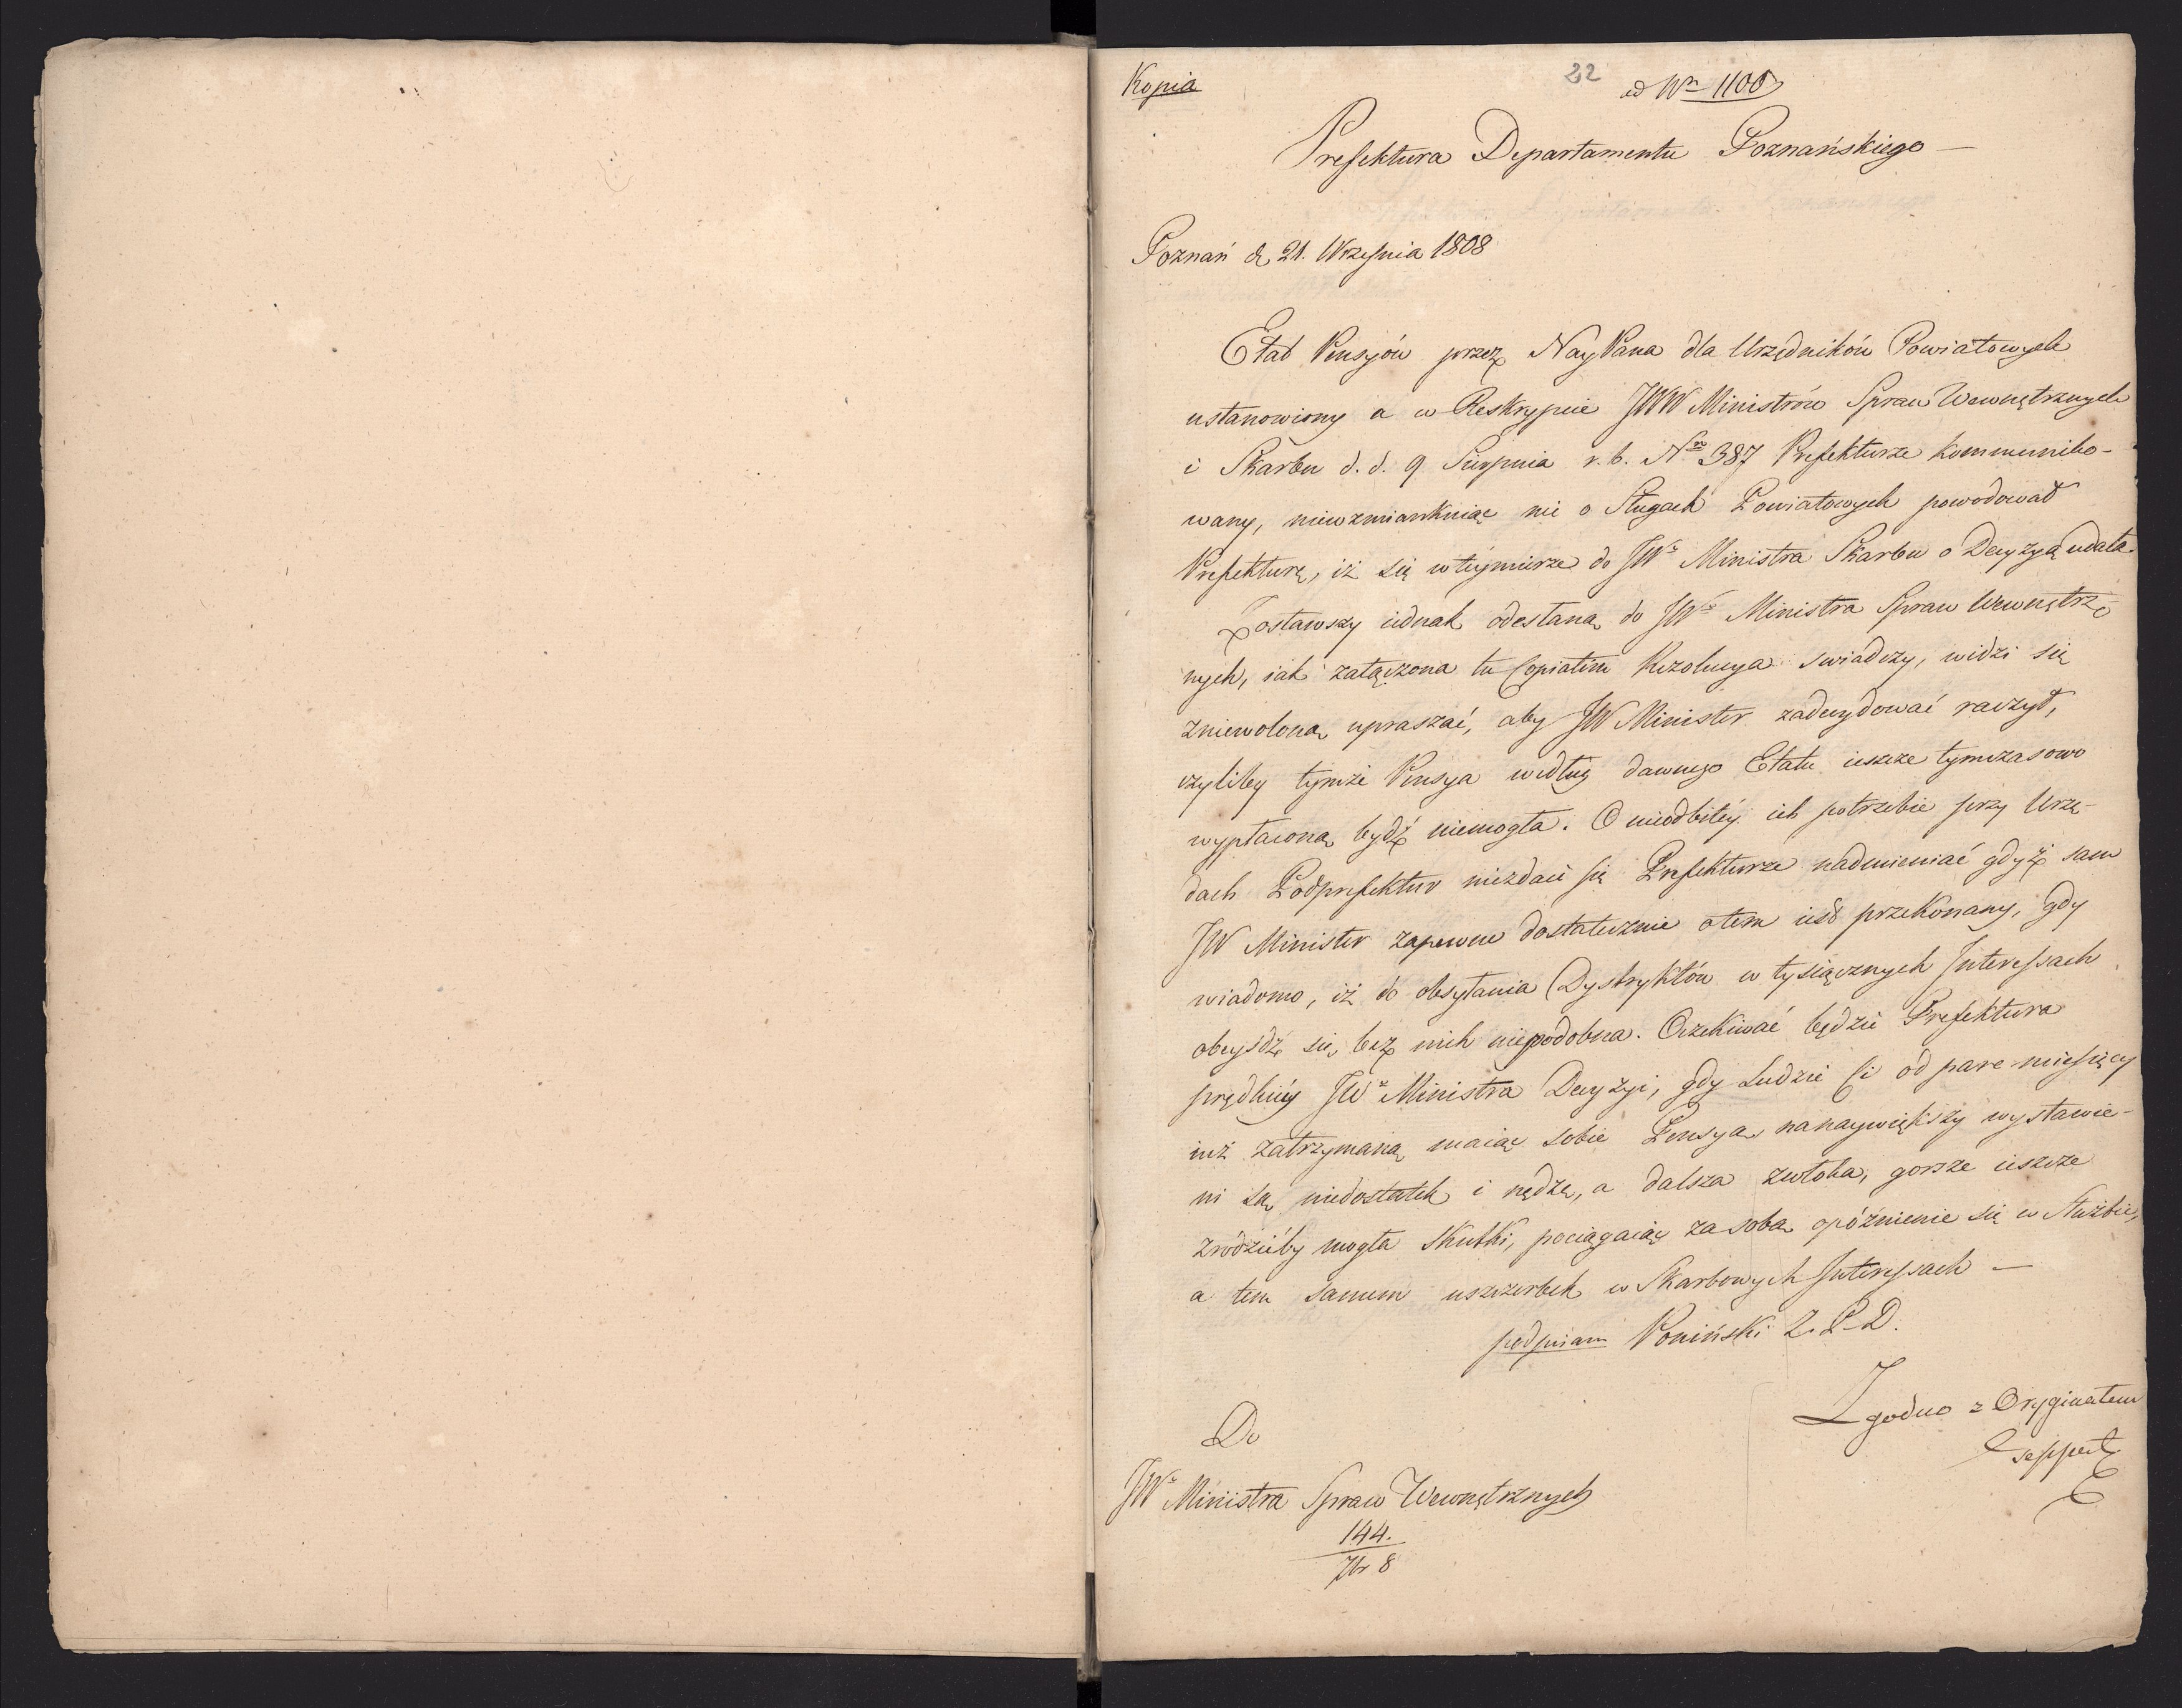 Kopia
22
ad Nrn 1100
Prefektura Departamentu Poznańskiego —
Poznań d. 21. Września 1808
Etat Pensyów przez NayPana dla Urzędników Powiatowych
ustanowiony a w Reskrypcie JWW Ministrów Spraw Wewnętrznych
i Skarbu d. d. 9 Sierpnia r. b. Nro 387 Prefekturze kommuniko-
wany, niewzmiankuiąc nic o Sługach Powiatowych powodował
Prefekturę, iż się w teymierze do JWo Ministra Skarbu o Decyzyą udała.
Zostawszy iednak odesłaną do JWo Ministra Spraw Wewnętrz-
nych, iak załączona tu Copiatim Rezolucya swiadczy, widzi się
zniewoloną upraszać, aby JW Minister zadecydować raczył,
czyliby tymże Pensya według dawnego Etatu ieszcze tymczasowo
wypłaconą bydź niemogła. O nieodbitéy ich potrzebie przy Urzę-
dach Podprefektur niezdaie się Prefekturze nadmieniać gdyż sam
JW Minister zapewne dostatecznie otem iest przekonany, gdy
wiadomo, iż do obsyłania Dystryktów w tysiącznych Interessach
obeyśdź się bez nich niepodobna. Oczekiwać będzie Prefektura
prędkiéy JWo Ministra Decyzyi, gdy Ludzie Ci od pare miesięcy
iuż zatrzymaną maiąc sobie Pensyą, na naywiększy wystawie-
ni są niedostatek i nędzę, a dalsza zwłoka, gorsze ieszcze
zrodzićby mogła skutki, pociągaiąc za sobą opóźnienie się w Służbie,
a tem samem uszczerbek w Skarbowych Interessach —
podpisano Poniński Z. P. D.
Zgodno z Oryginałem
Do
JWo Ministra Spraw Wewnętrznych
144.
7br 8